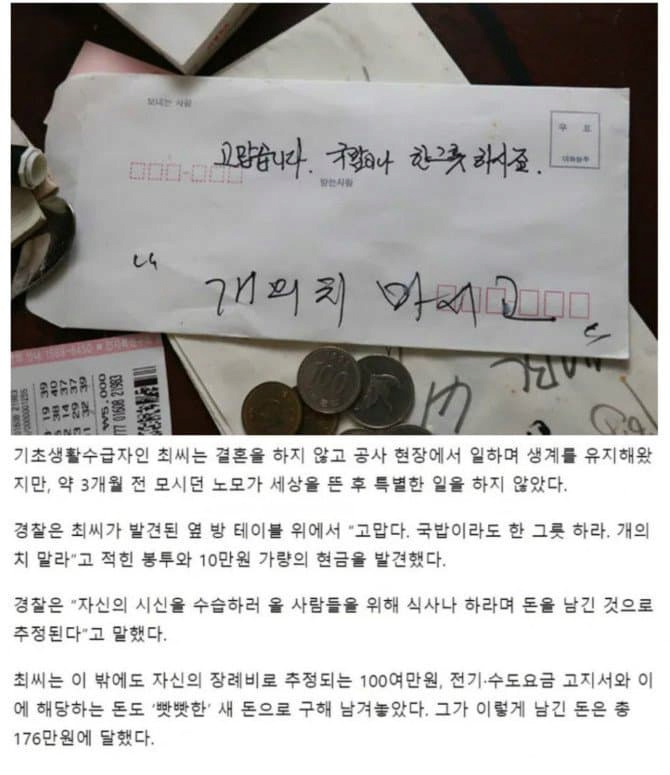 보내는 사람
우 표
고맙습니다. 국밥이나 한그릇 하시죠.
받는사람
“ 개의치 마시고 ”
100
기초생활수급자인 최씨는 결혼을 하지 않고 공사 현장에서 일하며 생계를 유지해왔
지만, 약 3개월 전 모시던 노모가 세상을 뜬 후 특별한 일을 하지 않았다.
경찰은 최씨가 발견된 옆 방 테이블 위에서 “고맙다. 국밥이라도 한 그릇 하라. 개의
치 말라”고 적힌 봉투와 10만원 가량의 현금을 발견했다.
경찰은 “자신의 시신을 수습하러 올 사람들을 위해 식사나 하라며 돈을 남긴 것으로
추정된다”고 말했다.
최씨는 이 밖에도 자신의 장례비로 추정되는 100여만원, 전기·수도요금 고지서와 이
에 해당하는 돈도 ‘빳빳한’ 새 돈으로 구해 남겨놓았다. 그가 이렇게 남긴 돈은 총
176만원에 달했다.